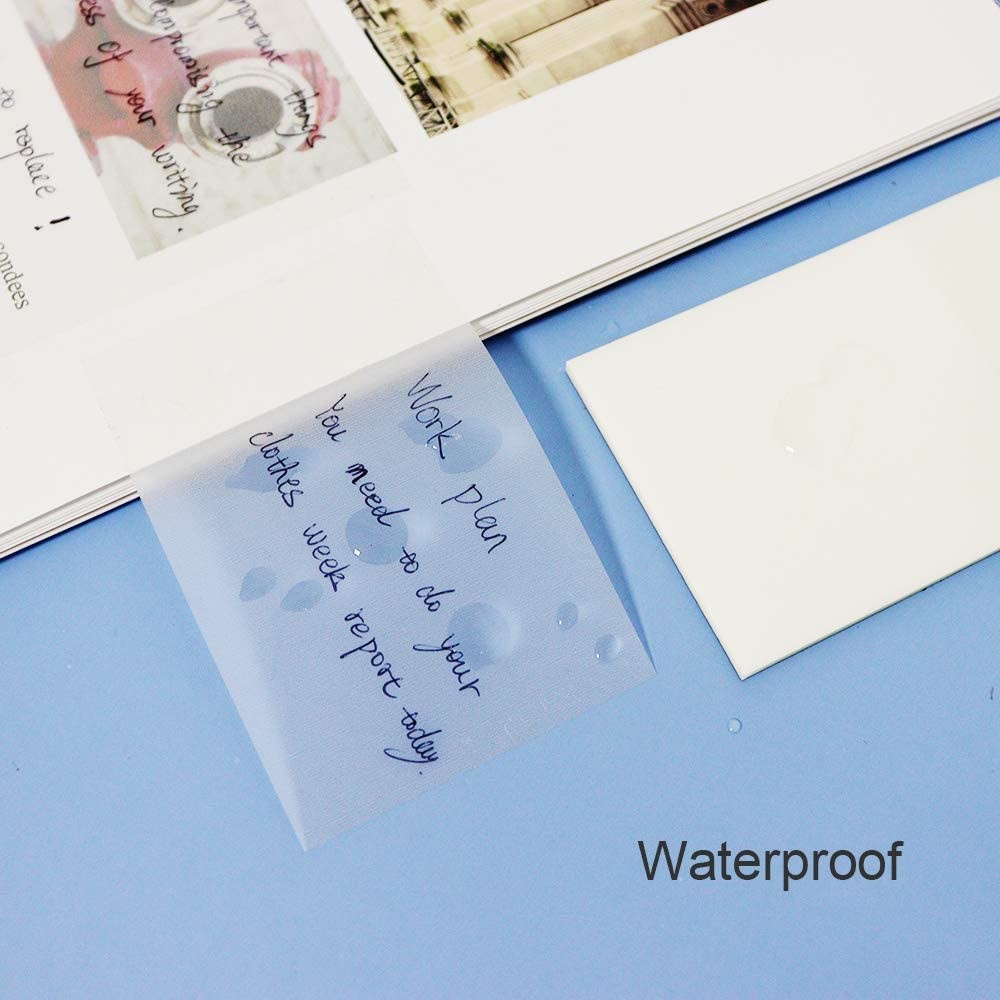 important things
compromising the
ess of your writing.
to replace !
ondees
Work plan
You meed to do your
clothes week report today.
Waterproof